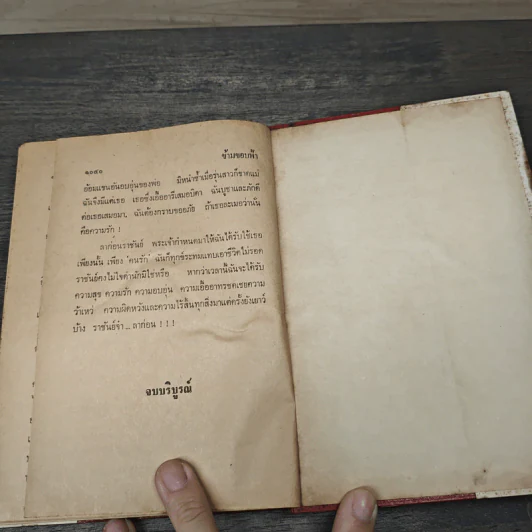 ๑๐๔๐
ข้ามขอบฟ้า
อ้อมแขนอันอบอุ่นของพ่อ มิหนำซ้ำเมื่อรุ่นสาวก็ขาดแม่
ฉันจึงมีแต่เธอ เธอซึ่งเอื้ออารีเสมอบิดา ฉันบูชาและภักดี
ต่อเธอเสมอมา, ฉันต้องกราบขออภัย ถ้าเธอละเมอว่านั่น
คือความรัก !
ลาก่อนราชันย์ พระเจ้ากำหนดมาให้ฉันได้รับใช้เธอ
เพียงนั้น เพียง 'คนรัก' ฉันก็ทุกข์ระทมแทบเอาชีวิตไม่รอด
ราชันย์คงไม่ใจดำนักมิใช่หรือ หากว่าเวลานี้ฉันจะได้รับ
ความสุข ความรัก ความอบอุ่น ความเอื้ออาทรชดเชยความ
ว้าเหว่ ความผิดหวังและความไร้สิ้นทุกสิ่งมาแต่ครั้งยังเยาว์
บ้าง ราชันย์จ๋า ... ลาก่อน ! ! !
จบบริบูรณ์